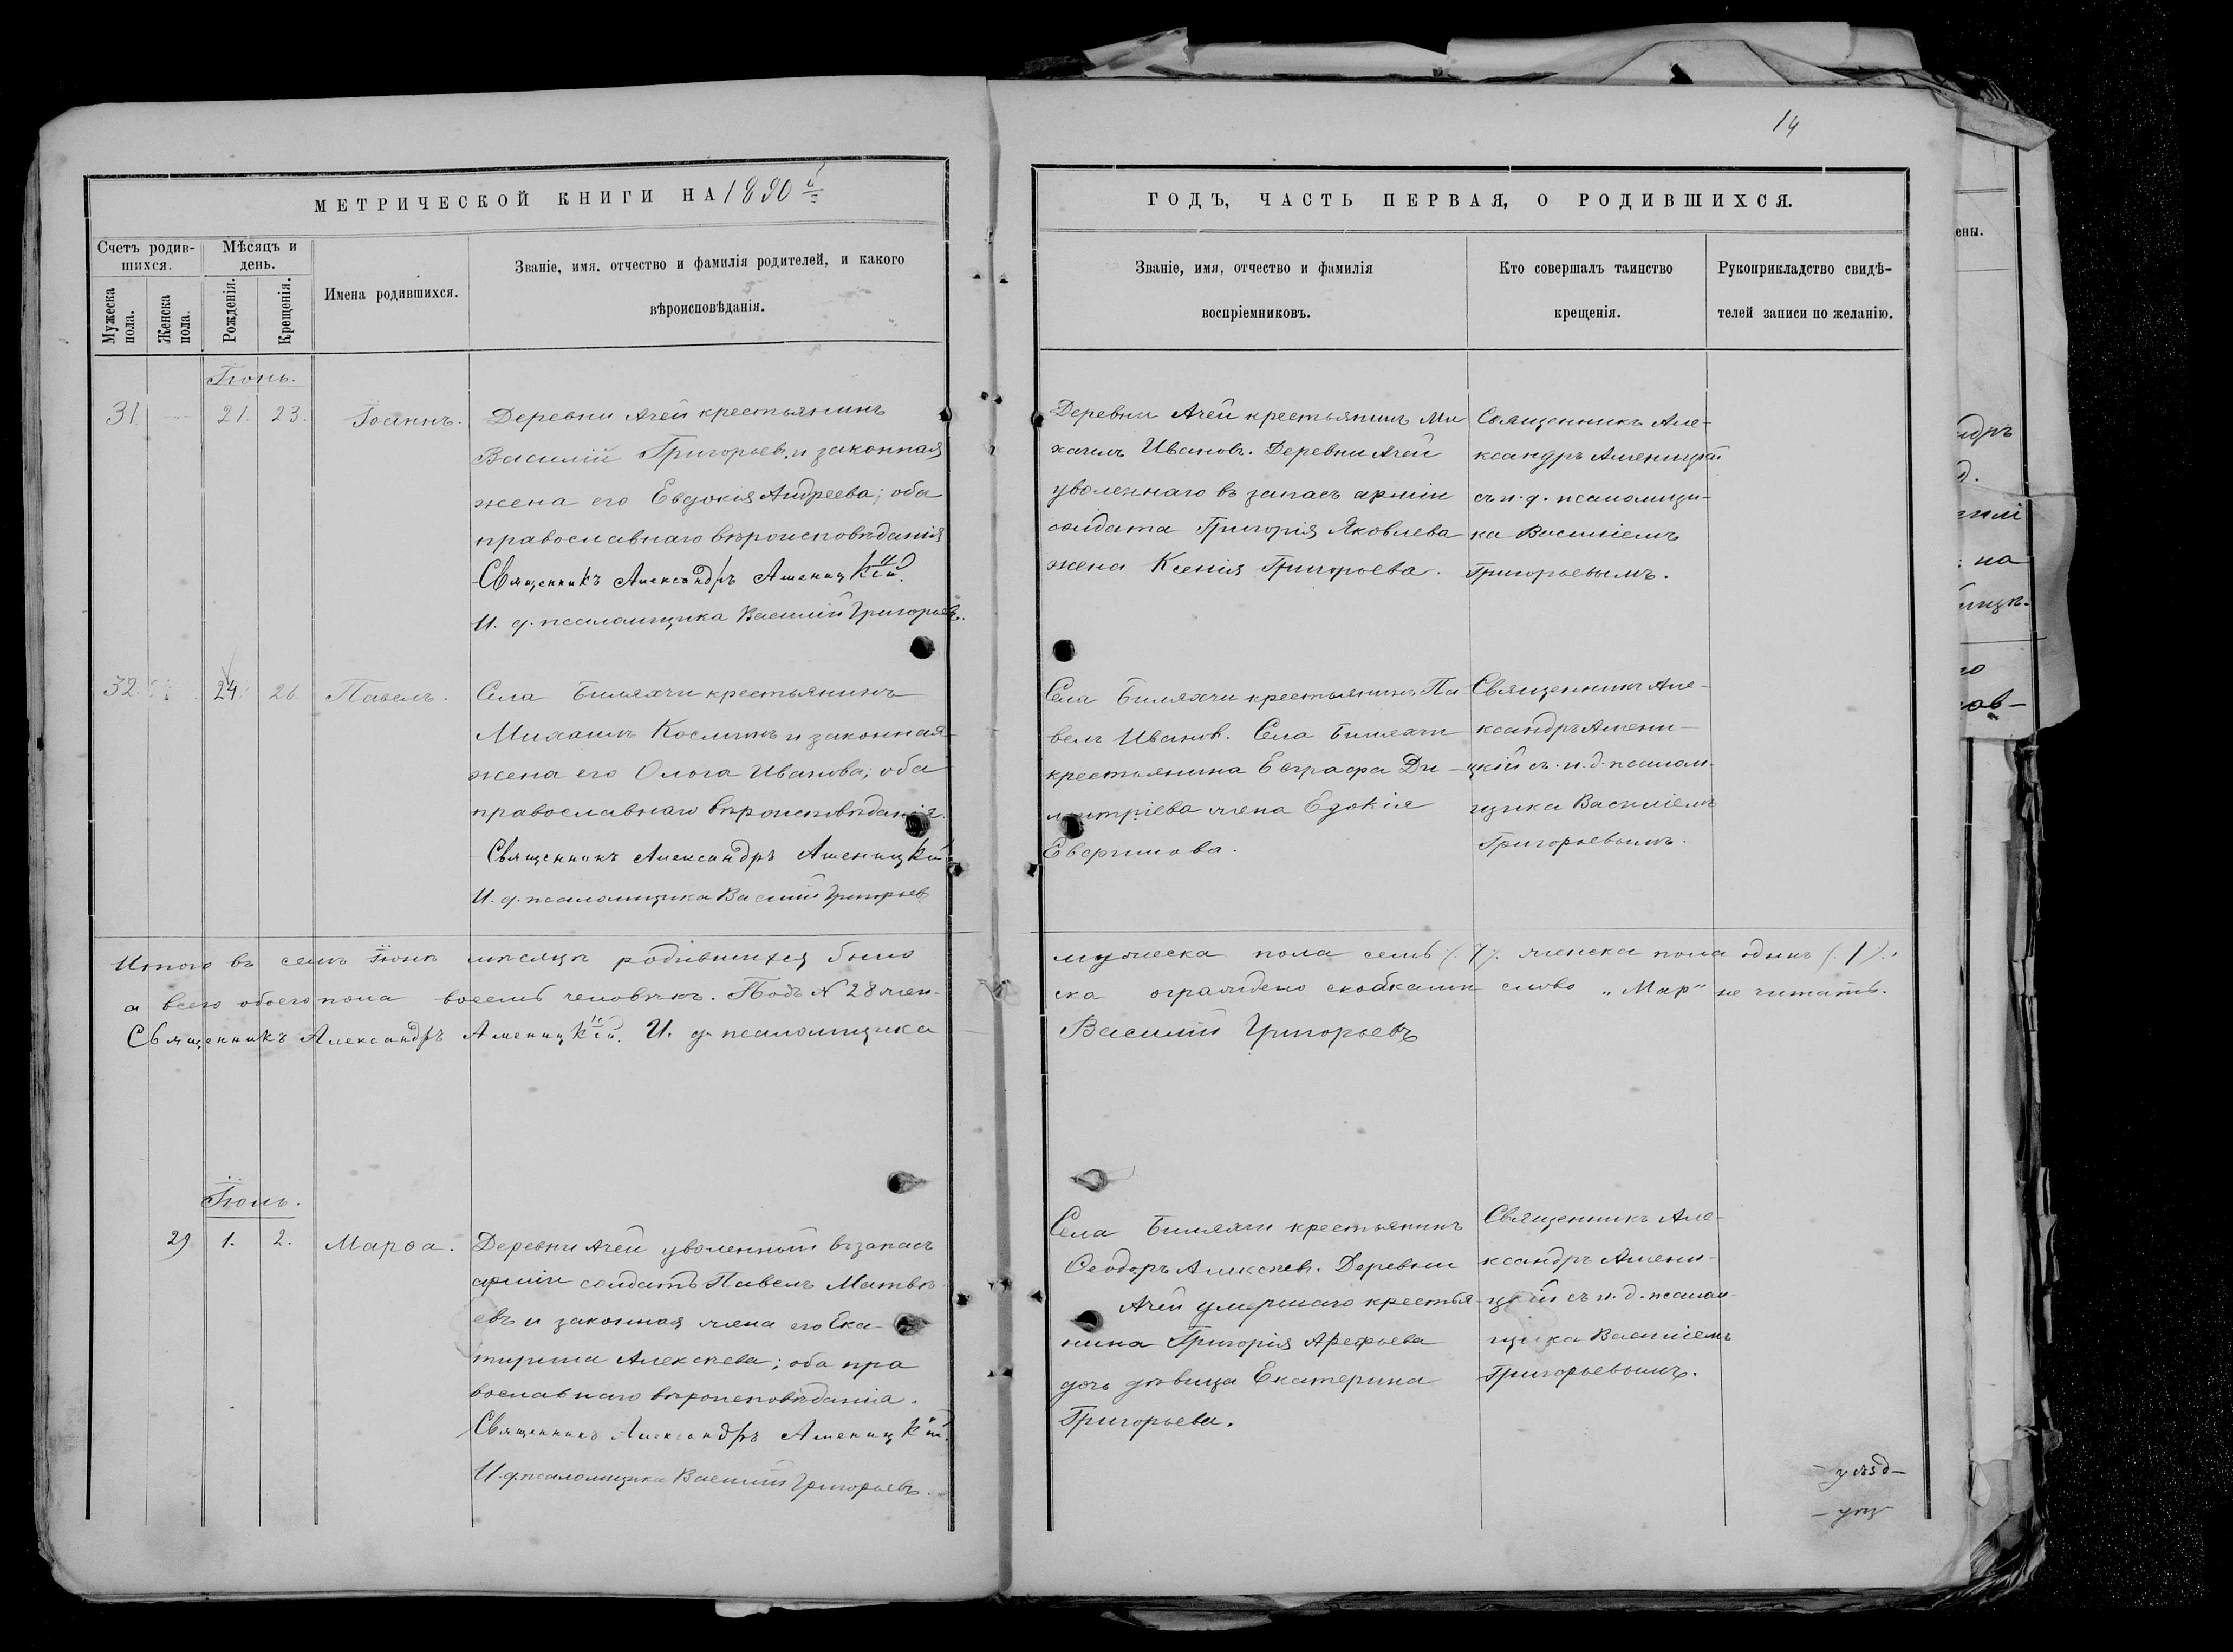 14
МЕТРИЧЕСКОЙ КНИГИ НА 1890 й
Счетъ родив-
шихся.
Мѣсяцъ и
день.
Мужеска
пола.
Женска
пола.
Рожденія.
Крещенія.
Имена родившихся.
Званіе, имя. отчество и фамилія родителей, и какого
вѣроисповѣданія.
Іюнь.
31 21. 23. Іоаннъ.
Деревни Ачей крестьянинъ
Василій Григорьев. и законная
жена его Евдокія Андреева; оба
православнаго вѣроисповѣданія
Священникъ Александръ
И. д. псаломщика Василій Григорьевъ.
32. 24 26. Павелъ.
Села Билярчи крестьянинъ
Михаилъ Косминъ и законная
жена его Олога Иванова; оба
православнаго вѣроисповѣданія.
Священникъ Александръ
И. д. псаломщика Василій Григорьев
Итого въ семъ Іюнѣ мѣсяцѣ родившихся было
а всего обоего пола восемь человѣкъ. Подъ № 28 жен-
Священникъ Александръ И. д. псаломщика
Іюль.
29 1. 2. Марѳа.
Деревни Ачей уволенный въ запасъ
арміи солдатъ Павелъ Матвѣ-
евъ и законная жена его Ека-
терина Алексѣева; оба пра
вославнаго вѣроисповѣданія.
Священникъ Александръ
И. д. псаломщика Василій Григорьевъ.
ГОДЪ, ЧАСТЬ ПЕРВАЯ, О РОДИВШИХСЯ.
Званіе, имя, отчество и фамилія
воспріемниковъ.
Кто совершалъ таинство
крещенія.
Рукоприкладство свидѣ-
телей записи по желанію.
Деревни Ачей крестьянинъ Ми
хаилъ Ивановъ. Деревни Ачей
уволеннаго въ запасъ арміи
солдата Григорія Яковлева
жена Ксенія Григорьева.
Священникъ Але-
ксандръ
съ и. д. псаломщи-
ка Василіемъ
Григорьевымъ.
Села Билярчи крестьянинъ Па
велъ Иванов. Села Билярчи
крестьянина Евграфа Ди-
митріева жена Едокія
Священникъ Але-
ксандръ
съ. и. д. псалом-
щика Василіемъ
Григорьевымъ.
мужеска пола семь (7). женска пола одинъ (1).
ска ограждено скобками слово „Мар" не читать.
Василій Григорьевъ
Села Билярчи крестьянинъ
Ѳеодоръ Алексѣев. Деревни
Ачей умершаго крестья-
нина Григорія Арефьева
дочь дѣвица Екатерина
Григорьева.
Священникъ Але-
ксандръ
съ и. д. псалом-
щика Василіемъ
Григорьевымъ.